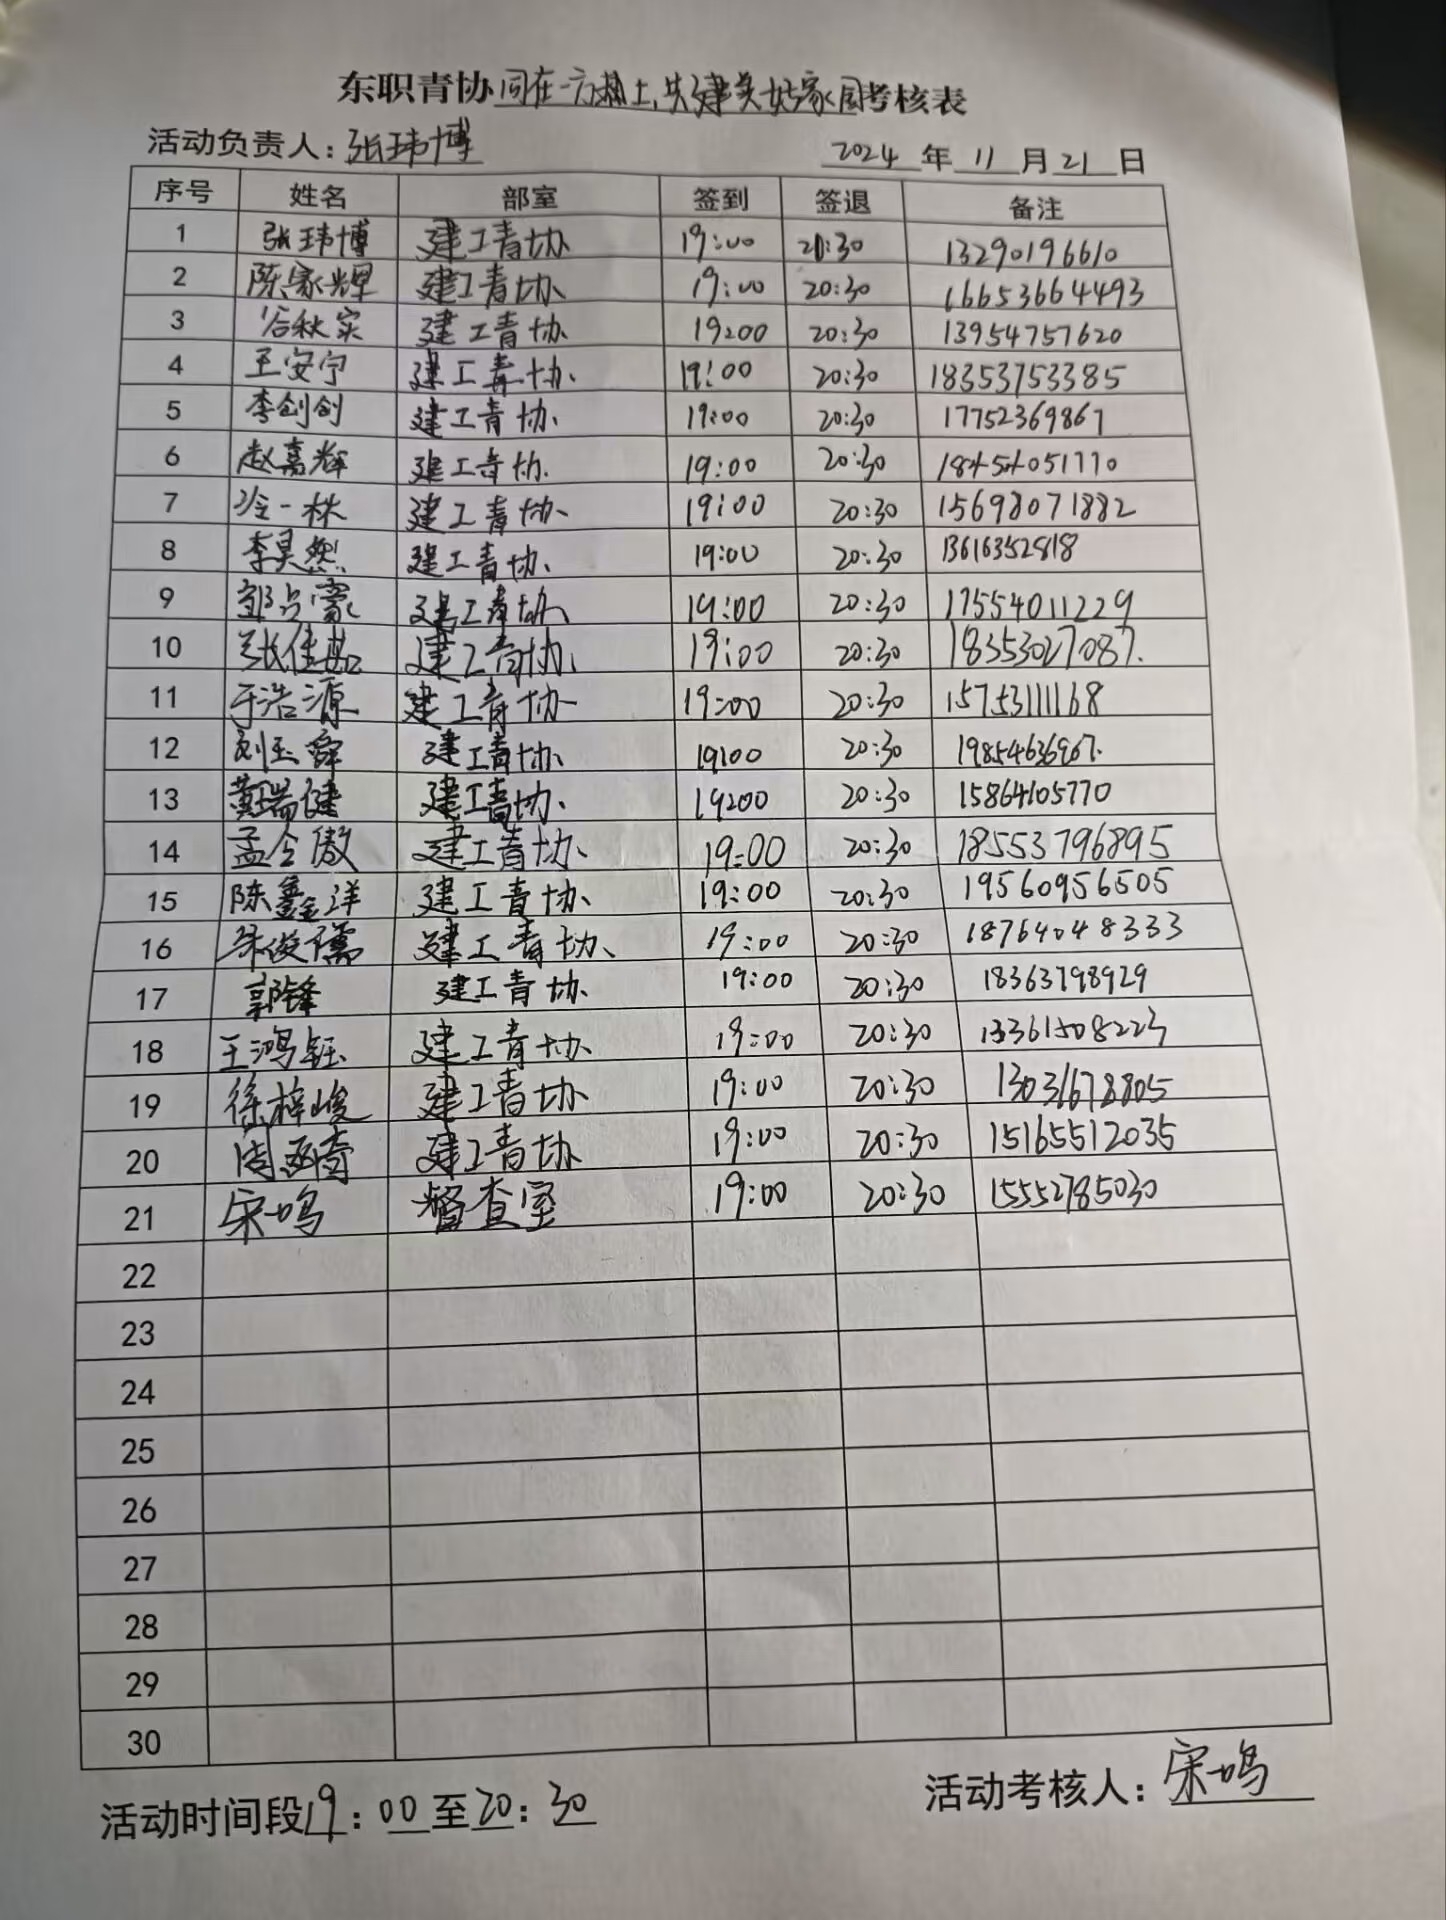 东职青协同在一方热土,共建美好家园考核表
活动负责人:张玮博 2024年11月21日
序号 姓名 部室 签到 签退 备注
1 张玮博 建工青协 19:00 20:30 13290196610
2 陈家辉 建工青协 19:00 20:30 16653664493
3 谷秋实 建工青协 19:00 20:30 13954757620
4 王安宁 建工青协 19:00 20:30 18353753385
5 李创创 建工青协 19:00 20:30 17752369867
6 赵嘉辉 建工青协 19:00 20:30 18454051770
7 冷一林 建工青协 19:00 20:30 15698071882
8 李昊燃 建工青协 19:00 20:30 13616352818
9 郭占豪 建工青协 19:00 20:30 17554011229
10 张佳茹 建工青协 19:00 20:30 18353027087
11 于浩源 建工青协 19:00 20:30 15753111168
12 刘玉舜 建工青协 19:00 20:30
13 黄瑞健 建工青协 19:00 20:30 15864105770
14 孟令傲 建工青协 19:00 20:30 18553796895
15 陈鑫洋 建工青协 19:00 20:30 19560956505
16 朱俊儒 建工青协 19:00 20:30 18764048333
17 郭锋 建工青协 19:00 20:30 18363798929
18 王鸿钰 建工青协 19:00 20:30 13361508223
19 徐梓峻 建工青协 19:00 20:30 13031678805
20 建工青协 19:00 20:30 15165512035
21 宋鸣 督查室 19:00 20:30 15552785030
22
23
24
25
26
27
28
29
30
活动时间段19:00至20:30 活动考核人:宋鸣